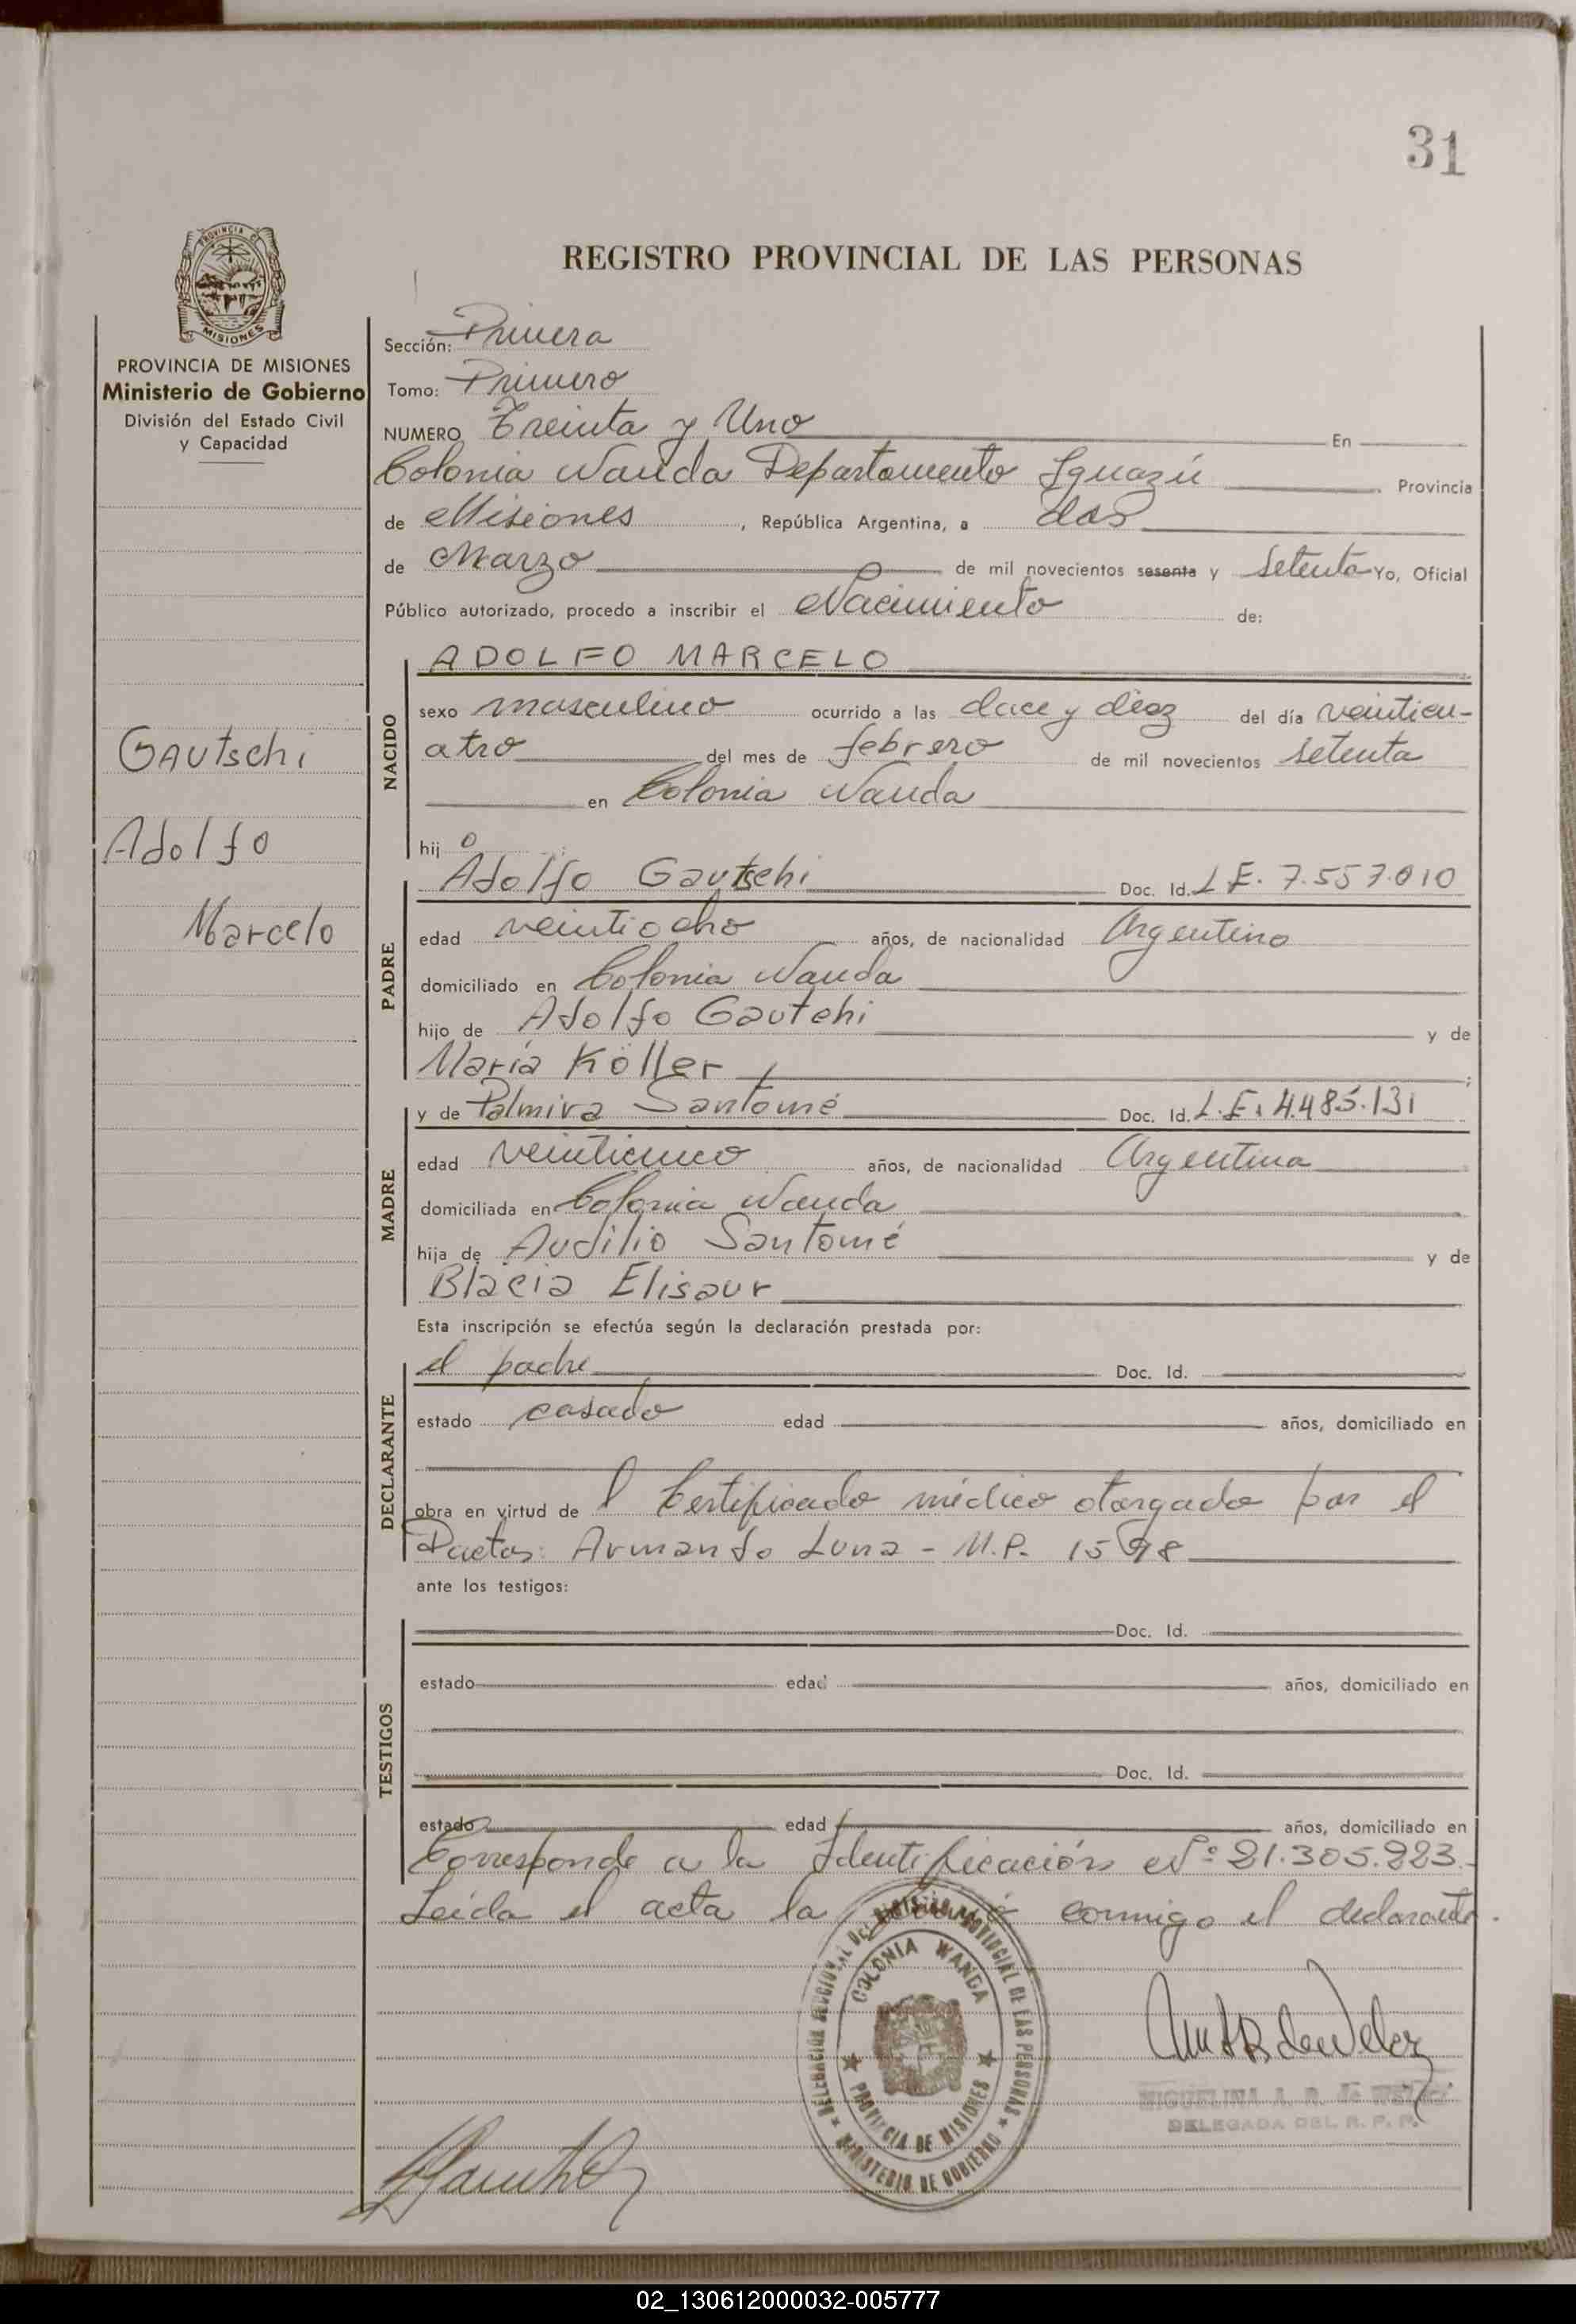 31
REGISTRO PROVINCIAL DE LAS PERSONAS
PROVINCIA DE MISIONES
Ministerio de Gobierno
División del Estado Civil
y Capacidad
Gautschi
Adolfo
Marcelo
Sección: Primera
Tomo: Primero
NUMERO Treinta y Uno En
Colonia Wanda Departamento Iguazú Provincia
de Misiones, República Argentina, a dos
de Marzo de mil novecientos sesenta y Setenta Yo, Oficial
Público autorizado, procedo a inscribir el Nacimiento de:
NACIDO
ADOLFO MARCELO
sexo masculino ocurrido a las doce y diez del día veinticu-
atro del mes de febrero de mil novecientos setenta
en Colonia Wanda
hijo
PADRE
Adolfo Gautschi Doc. Id. L.E. 7.557.010
edad veintiocho años, de nacionalidad Argentino
domiciliado en Colonia Wanda
hijo de Adolfo Gautchi y de
María Köller ;
MADRE
y de Palmira Santomé Doc. Id. L.E. 4.485.131
edad veinticinco años, de nacionalidad Argentina
domiciliada en Colonia Wanda
hija de Audilio Santomé y de
Blacia Elisaur
Esta inscripción se efectúa según la declaración prestada por:
DECLARANTE
el padre Doc. Id.
estado casado edad años, domiciliado en
obra en virtud de l Certificado médico otorgado por el
Doctor: Armando Luna - M.P. 1598
ante los testigos:
TESTIGOS
Doc. Id.
estado edad años, domiciliado en
Doc. Id.
estado edad años, domiciliado en
Corresponde a la Identificación Nº: 21.305.223.-
Leída el acta la conmigo el declarante.
COLONIA WANDA
PROVINCIA DE MISIONES
MINISTERIO DE GOBIERNO
MIGUELINA A. R. de
DELEGADA DEL R. P. P.
02_130612000032-005777